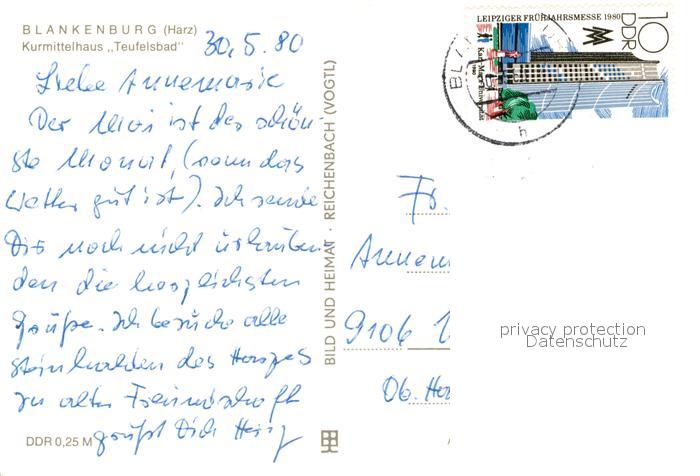 BLANKENBURG (Harz)
Kurmittelhaus „Teufelsbad"
30.5.80
Liebe Annemarie
Der Mai ist der schön-
ste Monat, (wenn das
Wetter gut ist). Ich sende
Dir noch nicht
den die herzlichsten
Grüße. Ich besuche alle
des Harzes
In alter Freundschaft
grüßt Dich Heinz
DDR 0,25 M
BILD UND HEIMAT · REICHENBACH (VOGTL)
LEIPZIGER FRÜHJAHRSMESSE 1980
10
DDR
Karl-Marx-Universität
1980
BLAN
h
Fr.
Annem
9106
Ob.
privacy protection
Datenschutz